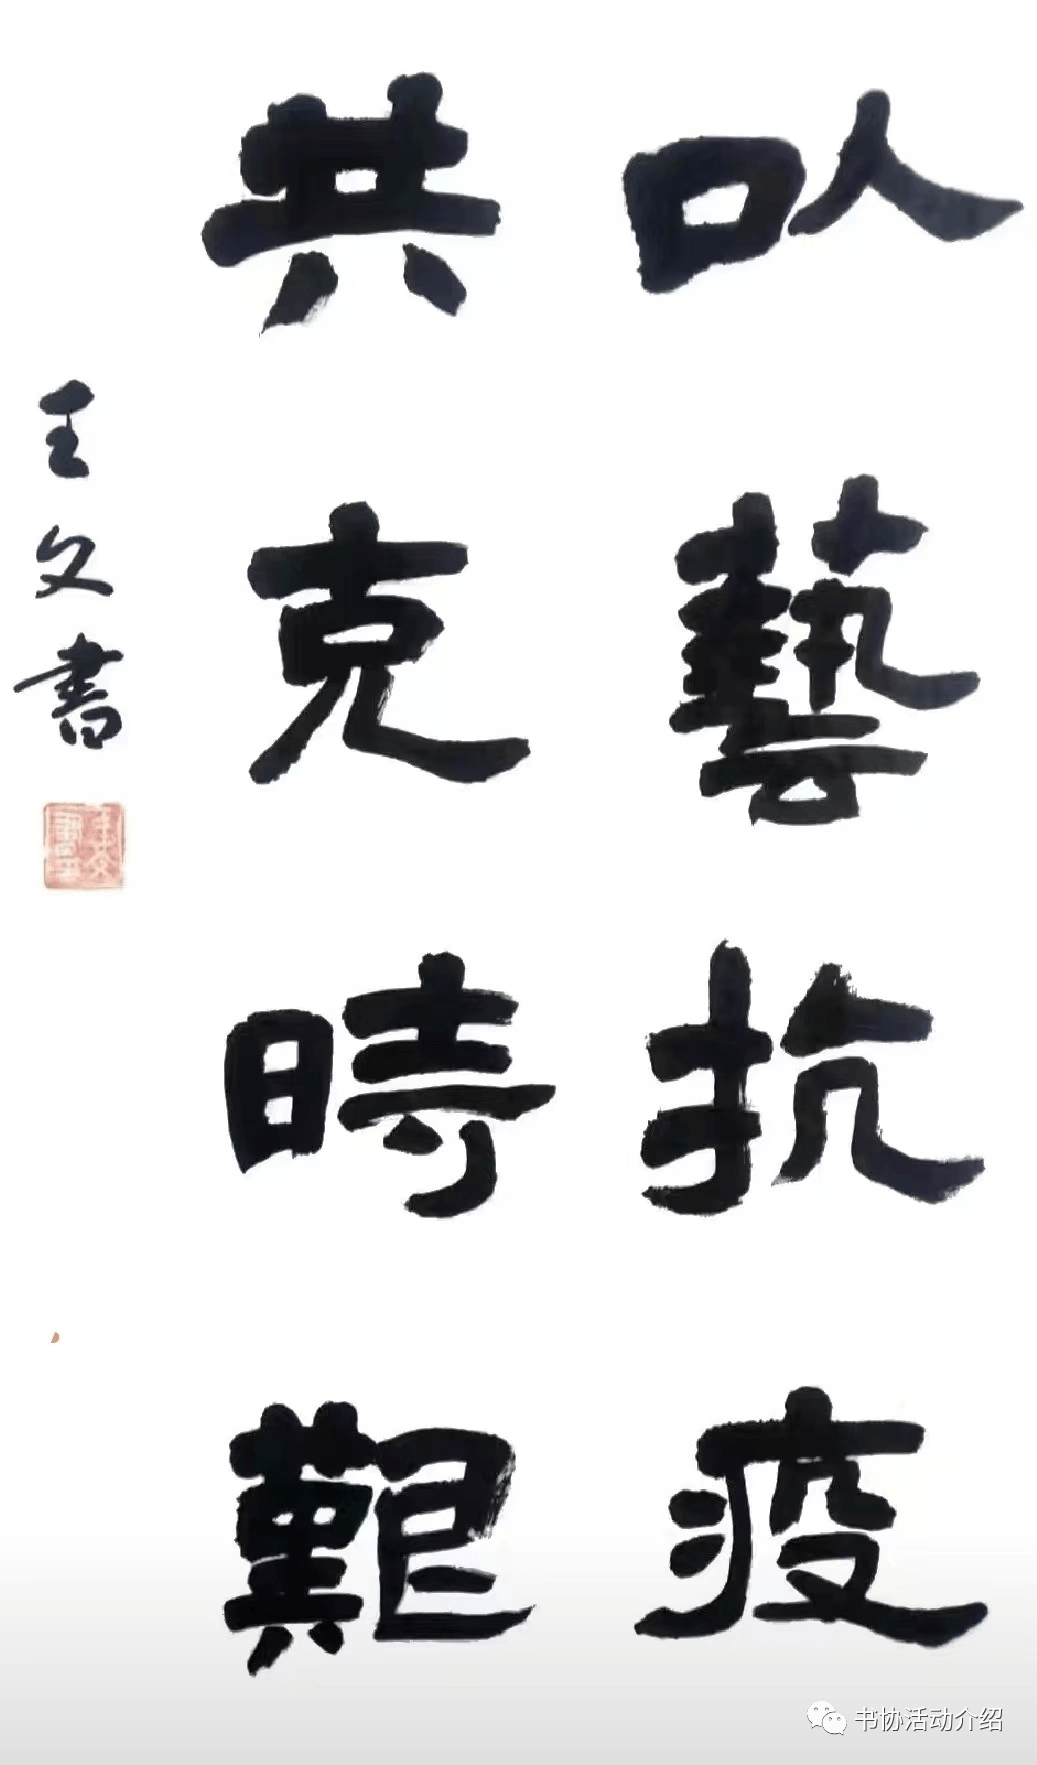 以藝抗疫
共克時艱
王文書
书协活动介绍